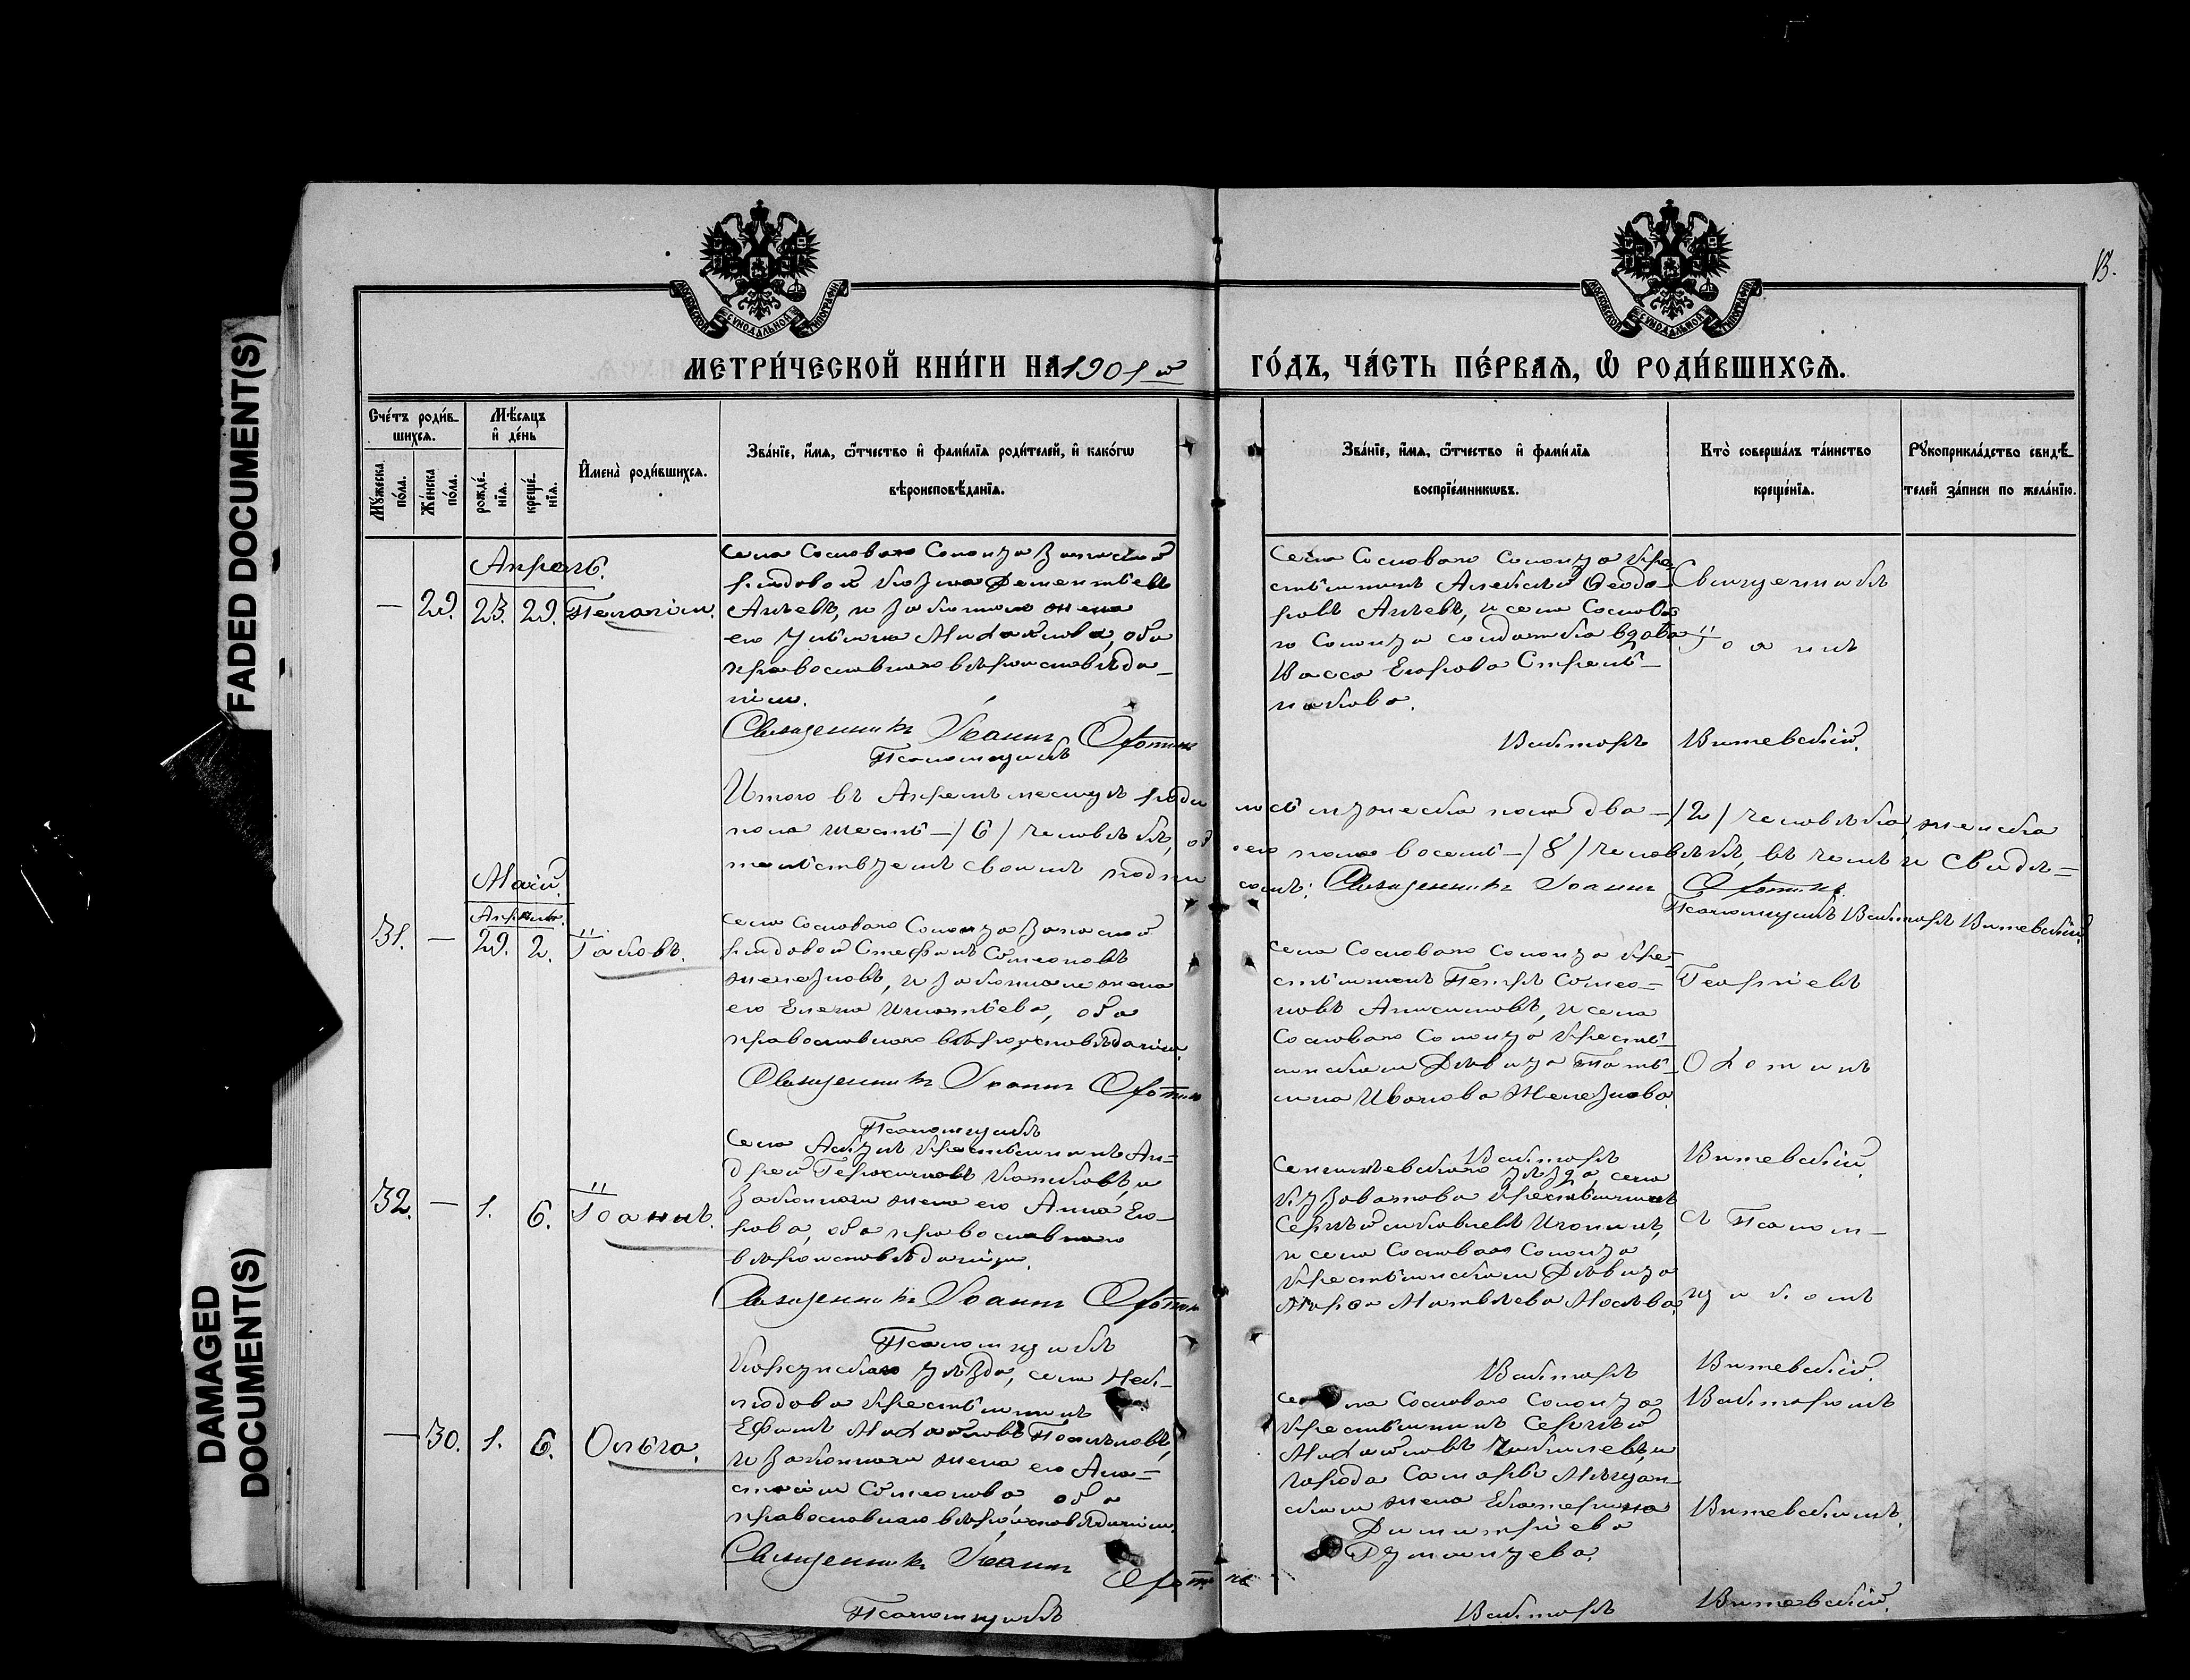 FADED DOCUMENT(S)
DAMAGED
DOCUMENT(S)
13.
МОСКОВСКОЙ СѴНОДАЛЬНОЙ ТИПОГРАФІИ
МОСКОВСКОЙ СѴНОДАЛЬНОЙ ТИПОГРАФІИ
МЕТРИ́ЧЕСКОЙ КНИ́ГИ НА 1901 й
ГО́ДЪ, ЧА́СТЬ ПЕ́РВАѦ, Ѿ РОДИ́ВШИХСѦ.
Сче́тъ роди́в-
шихсѧ.
Мꙋ́жеска
по́ла.
Же́нска
по́ла.
Мѣ́сѧцъ
и҆ де́нь
рожде́-
нїѧ.
креще́-
нїѧ.
И҆мена̀ роди́вшихсѧ.
Зва́нїе, и҆́мѧ, ѻ҆́тчество и҆ фами́лїѧ роди́телей, и҆ како́гѡ
вѣроисповѣ́данїѧ.
Зва́нїе, и҆́мѧ, ѻ҆́тчество и҆ фами́лїѧ
воспрїе́мникѡвъ.
Кто̀ соверша́лъ та́инство
креще́нїѧ.
Рꙋкоприкла́дство свидѣ́-
телей за́писи по жела́нїю.
Апрель.
— 29. 23. 29. Пелагія.
Села Сосноваго Солонца запасной
рядовой Козма Дементьевъ
Агѣевъ, и законная жена
его Устинья Михайлова, оба
православнаго вѣроисповѣда-
нія.
Священникъ Іоаннъ Охотинъ
Псаломщикъ
Села Сосноваго Солонца кре-
стьянинъ Алексѣй Ѳеодо-
ровъ Агѣевъ, и села Соснова-
го Солонца солдатка вдова
Васса Егорова Стрель-
никова.
Викторъ
Священникъ
Іоаннъ
Витевскій.
Итого въ Апрелѣ месяцѣ роди
лось мужеска пола два — /2/ человѣка, женска
пола шесть — /6/ человѣкъ, об
оего пола восемь — /8/ человѣкъ, въ чемъ и свидѣ-
тельствуемъ своимъ подпи
сомъ: Священникъ Іоаннъ Охотинъ.
Псаломщикъ Викторъ Витевскій.
Маій.
Апрель.
31. — 29. 2. Іаковъ.
Села Сосноваго Солонца запасной
рядовой Стефанъ Симеоновъ
Железновъ, и законная жена
его Елена Игнатьева, оба
православнаго вѣроисповѣданія.
Священникъ Іоаннъ Охотинъ
Псаломщикъ
Села Сосноваго Солонца кре-
стьянинъ Петръ Симео-
новъ Анисимовъ, и села
Сосноваго Солонца кресть-
янская дѣвица Тать-
яна Иванова Железнова.
Викторъ
Георгіевъ
Охотинъ
Витевскій.
32. — 1. 6. Іоаннъ.
Села Аскулъ крестьянинъ Ан-
дрей Герасимовъ и
законная жена его Анна Его-
рова, оба православнаго
вѣроисповѣданія.
Священникъ Іоаннъ Охотинъ
Псаломщикъ
уѣзда, села
крестьянинъ
Сергѣй
и села Сосноваго Солонца
крестьянская дѣвица
Матвѣева
Викторъ
съ Псалом-
щикомъ
Витевскій.
— 30. 1. 6. Ольга.
уѣзда, села Нек-
людова крестьянинъ
Ефимъ Михайловъ
и законная жена его Ана-
стасія Симеонова оба
православнаго вѣроисповѣданія.
Священникъ Іоаннъ Охотинъ
Псаломщикъ
села Сосноваго Солонца
крестьянинъ Сергѣй
Михайловъ и
города Самары Мѣщан-
ская жена Екатерина
Димитріева
Румянцева.
Викторъ
Викторомъ
Витевскимъ.
Витевскій.